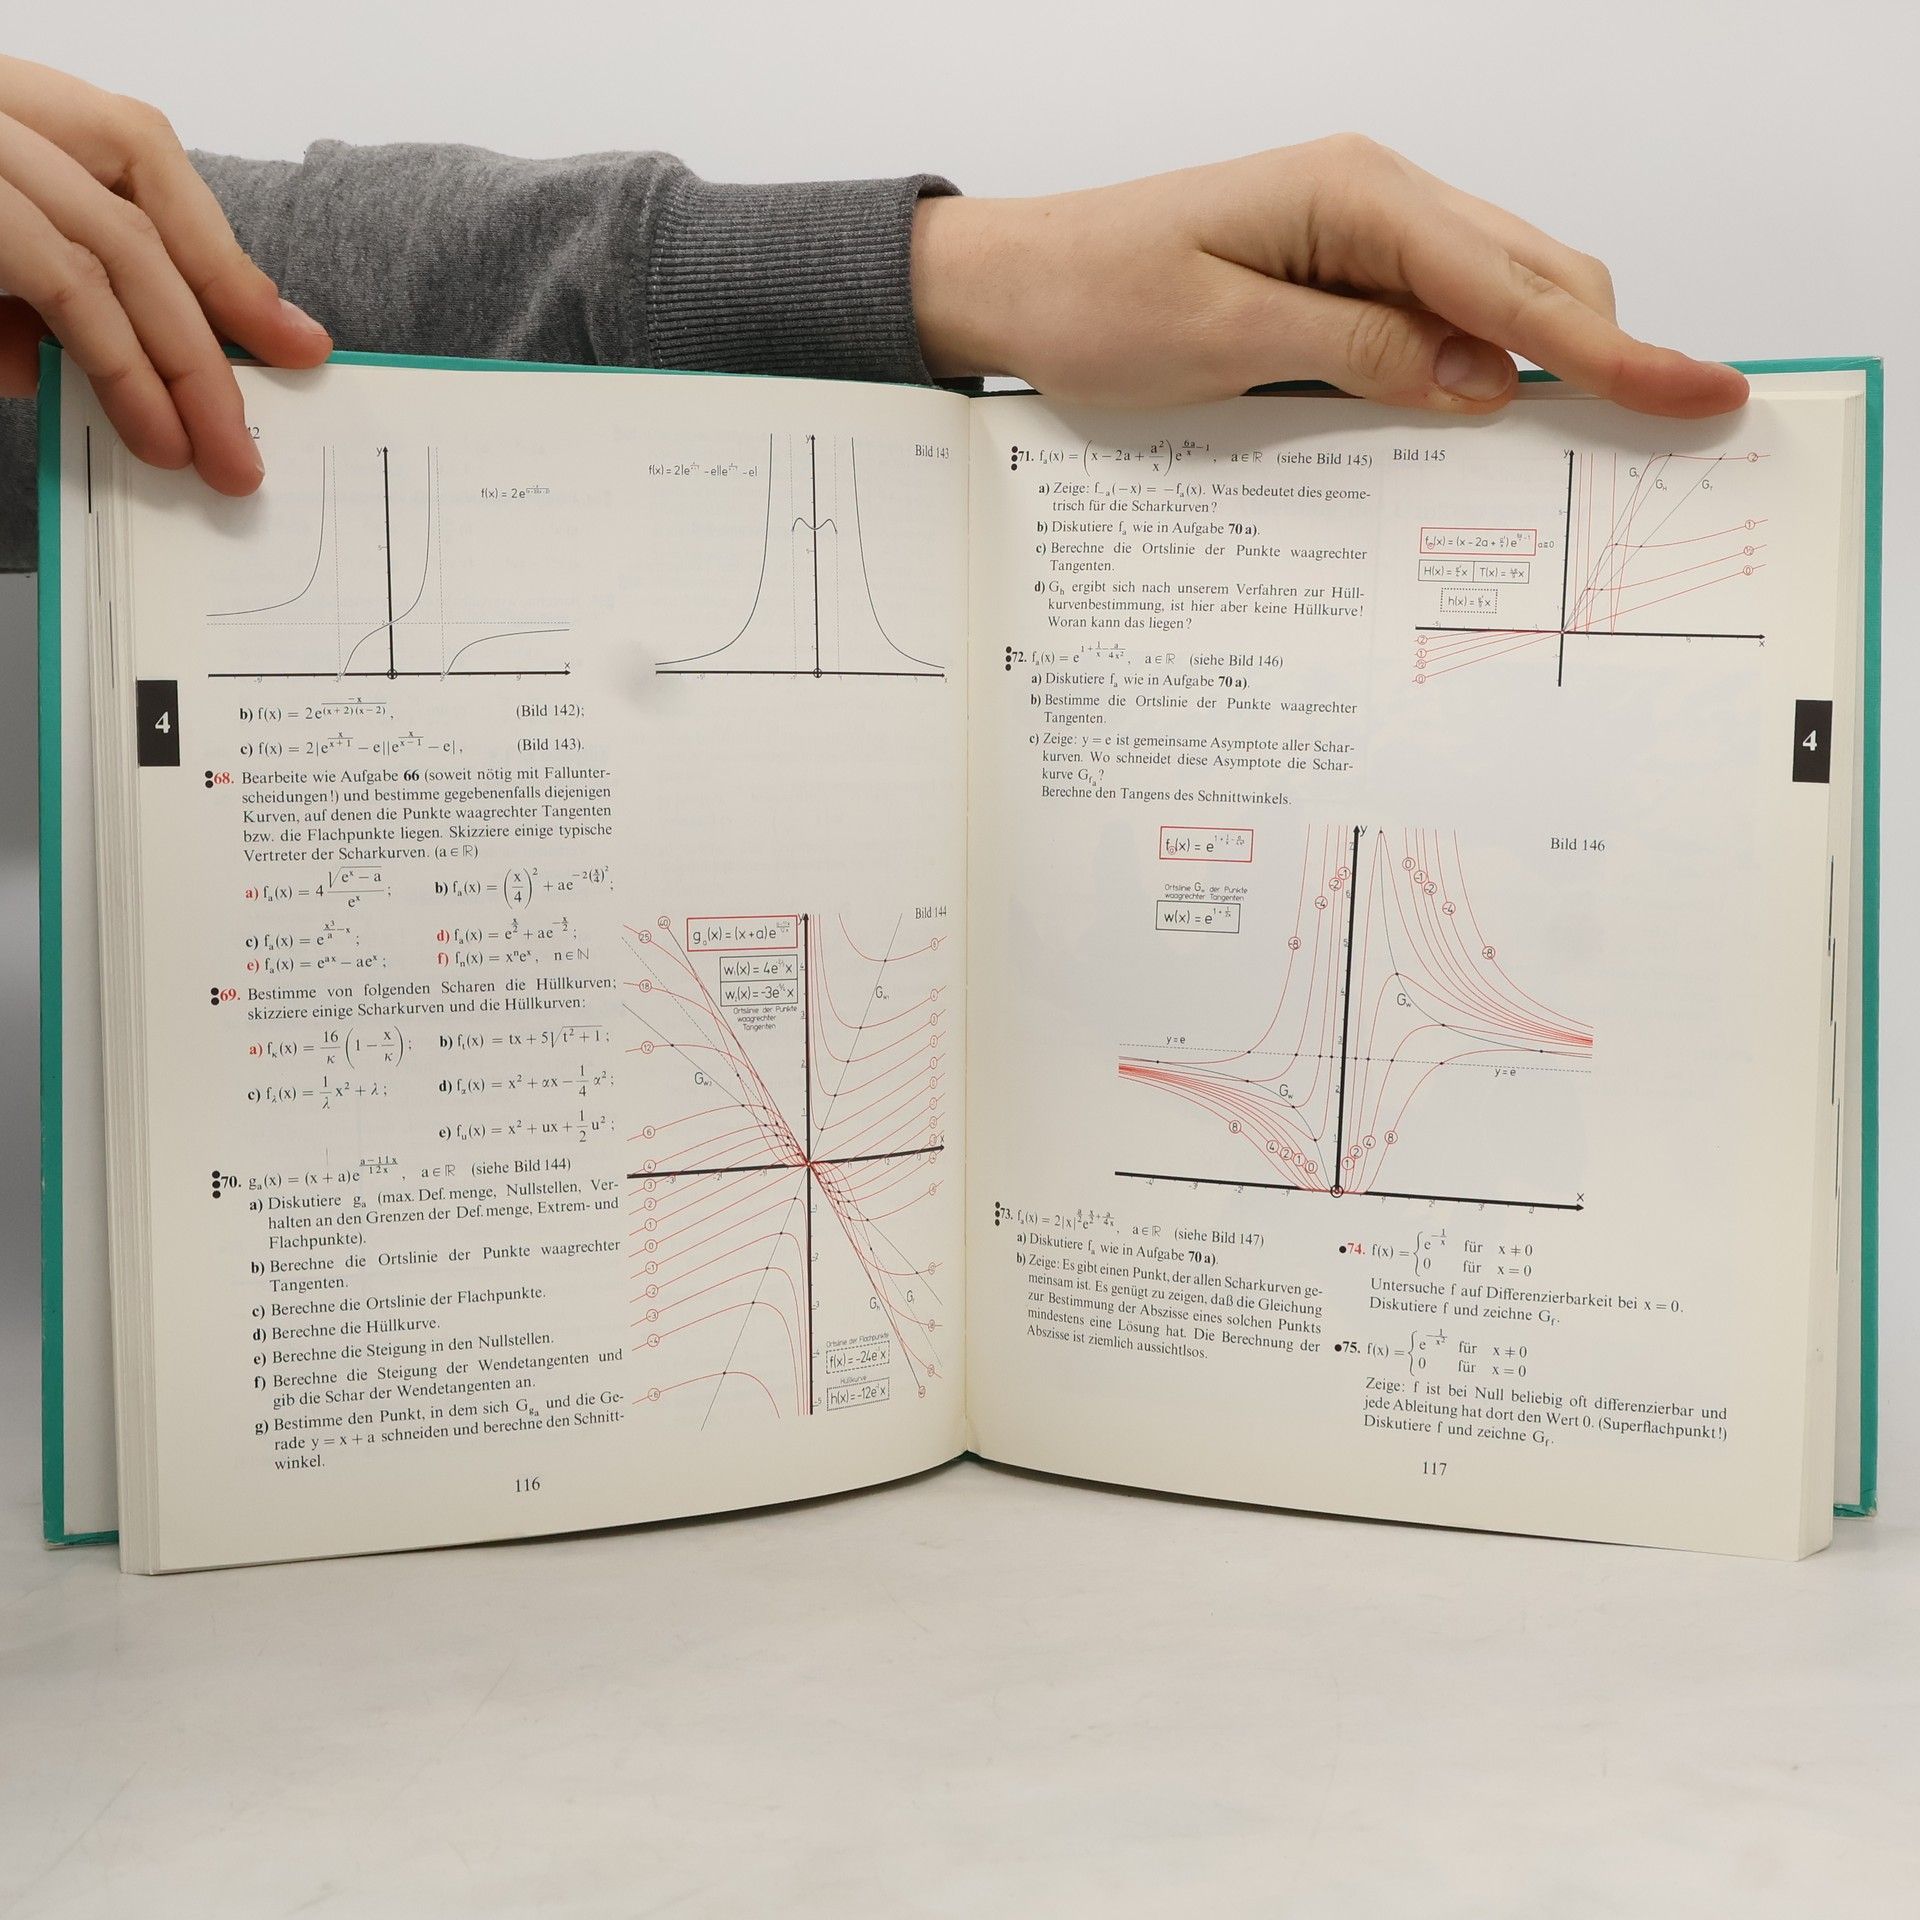 f(x) = 2e
Bild 143
b) f(x) = 2e^{\frac{-x}{(x+2)(x-2)}}, (Bild 142);
c) f(x) = 2|e^{\frac{x}{x+1}} − e||e^{\frac{x}{x−1}} − e|, (Bild 143).
4
68. Bearbeite wie Aufgabe 66 (soweit nötig mit Fallunter-
scheidungen!) und bestimme gegebenenfalls diejenigen
Kurven, auf denen die Punkte waagrechter Tangenten
bzw. die Flachpunkte liegen. Skizziere einige typische
Vertreter der Scharkurven. (a ∈ ℝ)
a) fₐ(x) = 4 \frac{\sqrt{e^x − a}}{e^x}; b) fₐ(x) = (\frac{x}{4})^2 + ae^{−2(\frac{x}{4})^2};
c) fₐ(x) = e^{\frac{x^3}{a}−x}; d) fₐ(x) = e^{\frac{x}{2}} + ae^{−\frac{x}{2}};
e) fₐ(x) = e^{ax} − ae^x; f) fₙ(x) = xⁿeˣ, n ∈ ℕ
69. Bestimme von folgenden Scharen die Hüllkurven;
skizziere einige Scharkurven und die Hüllkurven:
a) f_κ(x) = \frac{16}{κ}(1 − \frac{x}{κ}); b) f_t(x) = tx + 5\sqrt{t^2 + 1};
c) f_λ(x) = \frac{1}{λ}x² + λ; d) f_α(x) = x² + αx − \frac{1}{4}α²;
e) f_u(x) = x² + ux + \frac{1}{2}u²;
70. gₐ(x) = (x + a)e^{\frac{a−11x}{12x}}, a ∈ ℝ (siehe Bild 144)
a) Diskutiere gₐ (max. Def.menge, Nullstellen, Ver-
halten an den Grenzen der Def.menge, Extrem- und
Flachpunkte).
b) Berechne die Ortslinie der Punkte waagrechter
Tangenten.
c) Berechne die Ortslinie der Flachpunkte.
d) Berechne die Hüllkurve.
e) Berechne die Steigung in den Nullstellen.
f) Berechne die Steigung der Wendetangenten und
gib die Schar der Wendetangenten an.
g) Bestimme den Punkt, in dem sich G_{gₐ} und die Ge-
rade y = x + a schneiden und berechne den Schnitt-
winkel.
Bild 144
Ortslinie der Punkte
waagrechter
Tangenten
Ortslinie der Flachpunkte
Hüllkurve
116
71. fₐ(x) = (x − 2a + \frac{a^2}{x})e^{\frac{6a}{x}−1}, a ∈ ℝ (siehe Bild 145)
a) Zeige: f₋ₐ(−x) = −fₐ(x). Was bedeutet dies geome-
trisch für die Scharkurven?
b) Diskutiere fₐ wie in Aufgabe 70 a).
c) Berechne die Ortslinie der Punkte waagrechter
Tangenten.
d) G_h ergibt sich nach unserem Verfahren zur Hüll-
kurvenbestimmung, ist hier aber keine Hüllkurve!
Woran kann das liegen?
Bild 145
72. fₐ(x) = e^{1+\frac{1}{x}−\frac{a}{4x^2}}, a ∈ ℝ (siehe Bild 146)
a) Diskutiere fₐ wie in Aufgabe 70 a).
b) Bestimme die Ortslinie der Punkte waagrechter
Tangenten.
c) Zeige: y = e ist gemeinsame Asymptote aller Schar-
kurven. Wo schneidet diese Asymptote die Schar-
kurve G_{fₐ}?
Berechne den Tangens des Schnittwinkels.
4
Bild 146
Ortslinie G_w der Punkte
waagrechter Tangenten
w(x) = e^{1+\frac{1}{2x}}
y=e
y=e
73. fₐ(x) = 2|x|^{\frac{a}{2}}e^{\frac{x}{2}+\frac{a}{4x}}, a ∈ ℝ (siehe Bild 147)
a) Diskutiere fₐ wie in Aufgabe 70 a).
b) Zeige: Es gibt einen Punkt, der allen Scharkurven ge-
meinsam ist. Es genügt zu zeigen, daß die Gleichung
zur Bestimmung der Abszisse eines solchen Punkts
mindestens eine Lösung hat. Die Berechnung der
Abszisse ist ziemlich aussichtlsos.
74. f(x) = { e^{−\frac{1}{x}} für x ≠ 0
0 für x = 0
Untersuche f auf Differenzierbarkeit bei x = 0.
Diskutiere f und zeichne G_f.
75. f(x) = { e^{−\frac{1}{x^2}} für x ≠ 0
0 für x = 0
Zeige: f ist bei Null beliebig oft differenzierbar und
jede Ableitung hat dort den Wert 0. (Superflachpunkt!)
Diskutiere f und zeichne G_f.
117